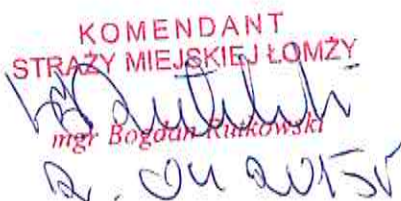 KOMENDANT
STRAŻY MIEJSKIEJ ŁOMŻY
mgr Bogdan Rutkowski
04 2015r